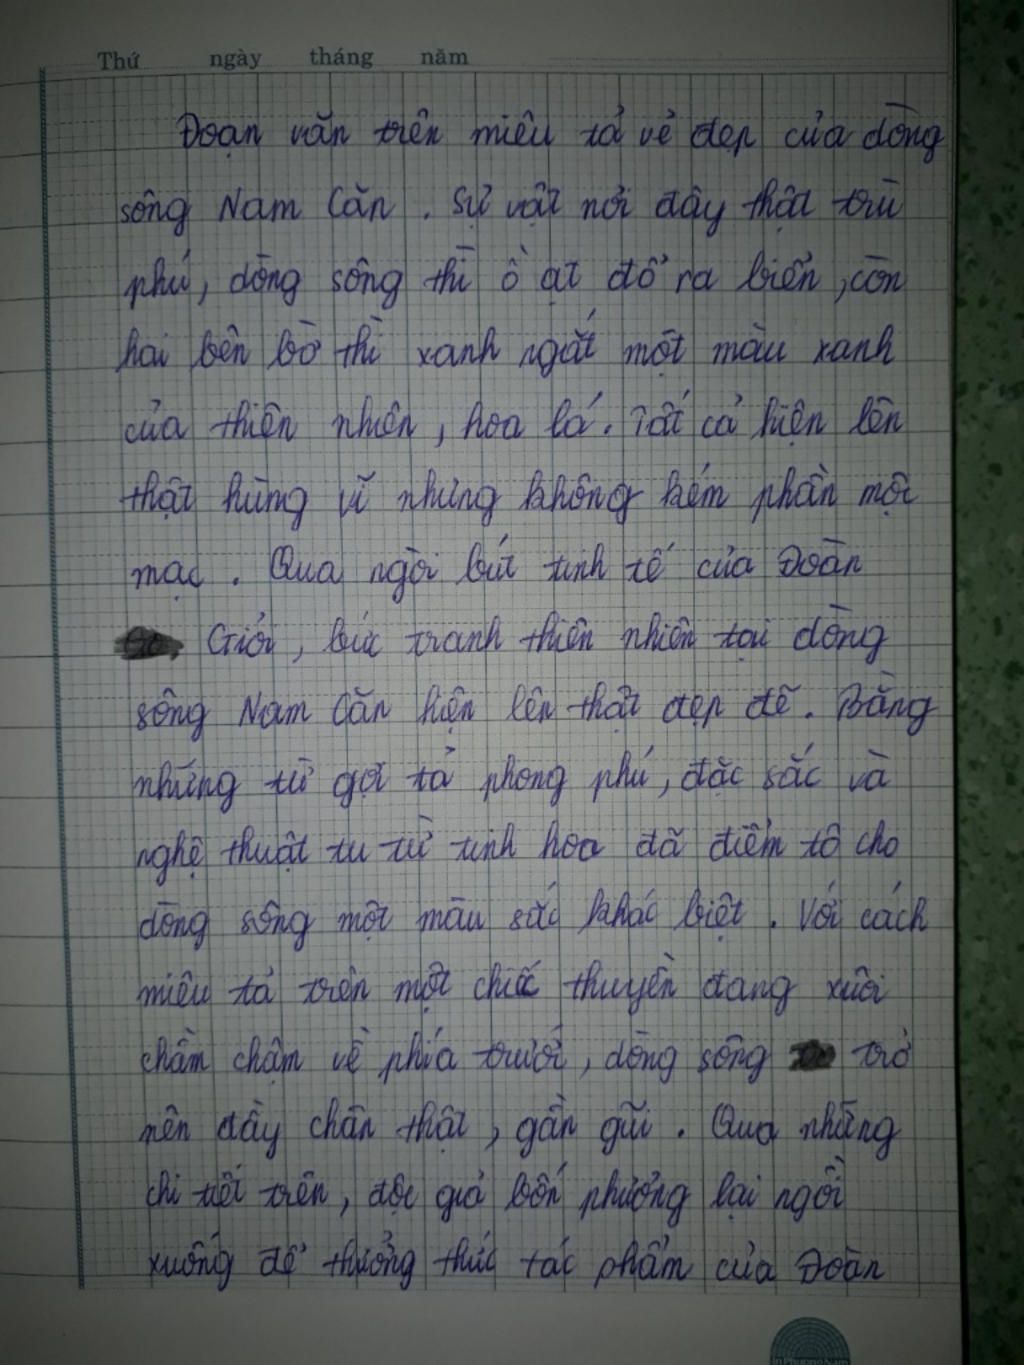 Thứ ngày tháng năm
Đoạn văn trên miêu tả vẻ đẹp của dòng
sông Năm Căn. Sự vật nơi đây thật trù
phú, dòng sông thì ồ ạt đổ ra biển, còn
hai bên bờ thì xanh ngắt một màu xanh
của thiên nhiên, hoa lá. Tất cả hiện lên
thật hùng vĩ nhưng không kém phần mộc
mạc. Qua ngòi bút tinh tế của Đoàn
Giỏi, bức tranh thiên nhiên tại dòng
sông Năm Căn hiện lên thật đẹp đẽ. Bằng
những từ gợi tả phong phú, đặc sắc và
nghệ thuật tu từ tinh hoa đã điểm tô cho
dòng sông một màu sắc khác biệt. Với cách
miêu tả trên một chiếc thuyền đang xuôi
chầm chậm về phía trước, dòng sông trở
nên đầy chân thật, gần gũi. Qua những
chi tiết trên, độc giả bốn phương lại ngồi
xuống để thưởng thức tác phẩm của Đoàn